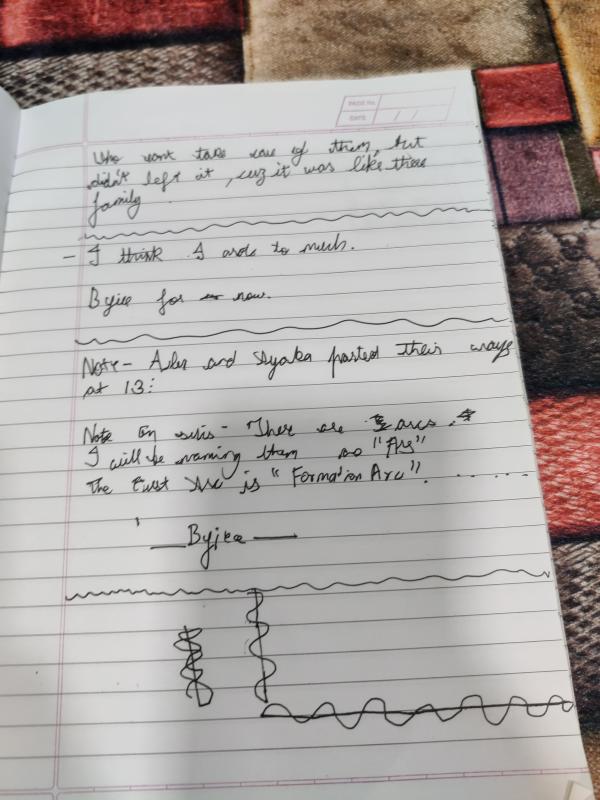 PAGE No.
DATE / /
Who wont take care of them, but
didn't left it, cuz it was like there
family
- I think I ards to much.
Byiee for now.
Note - and Ayaka parted their ways
at 13:
Note - There are 5 arcs.
I will be naming them as "Arc"
The first Arc is "Formation Arc". . . . . . .
— Byiee —